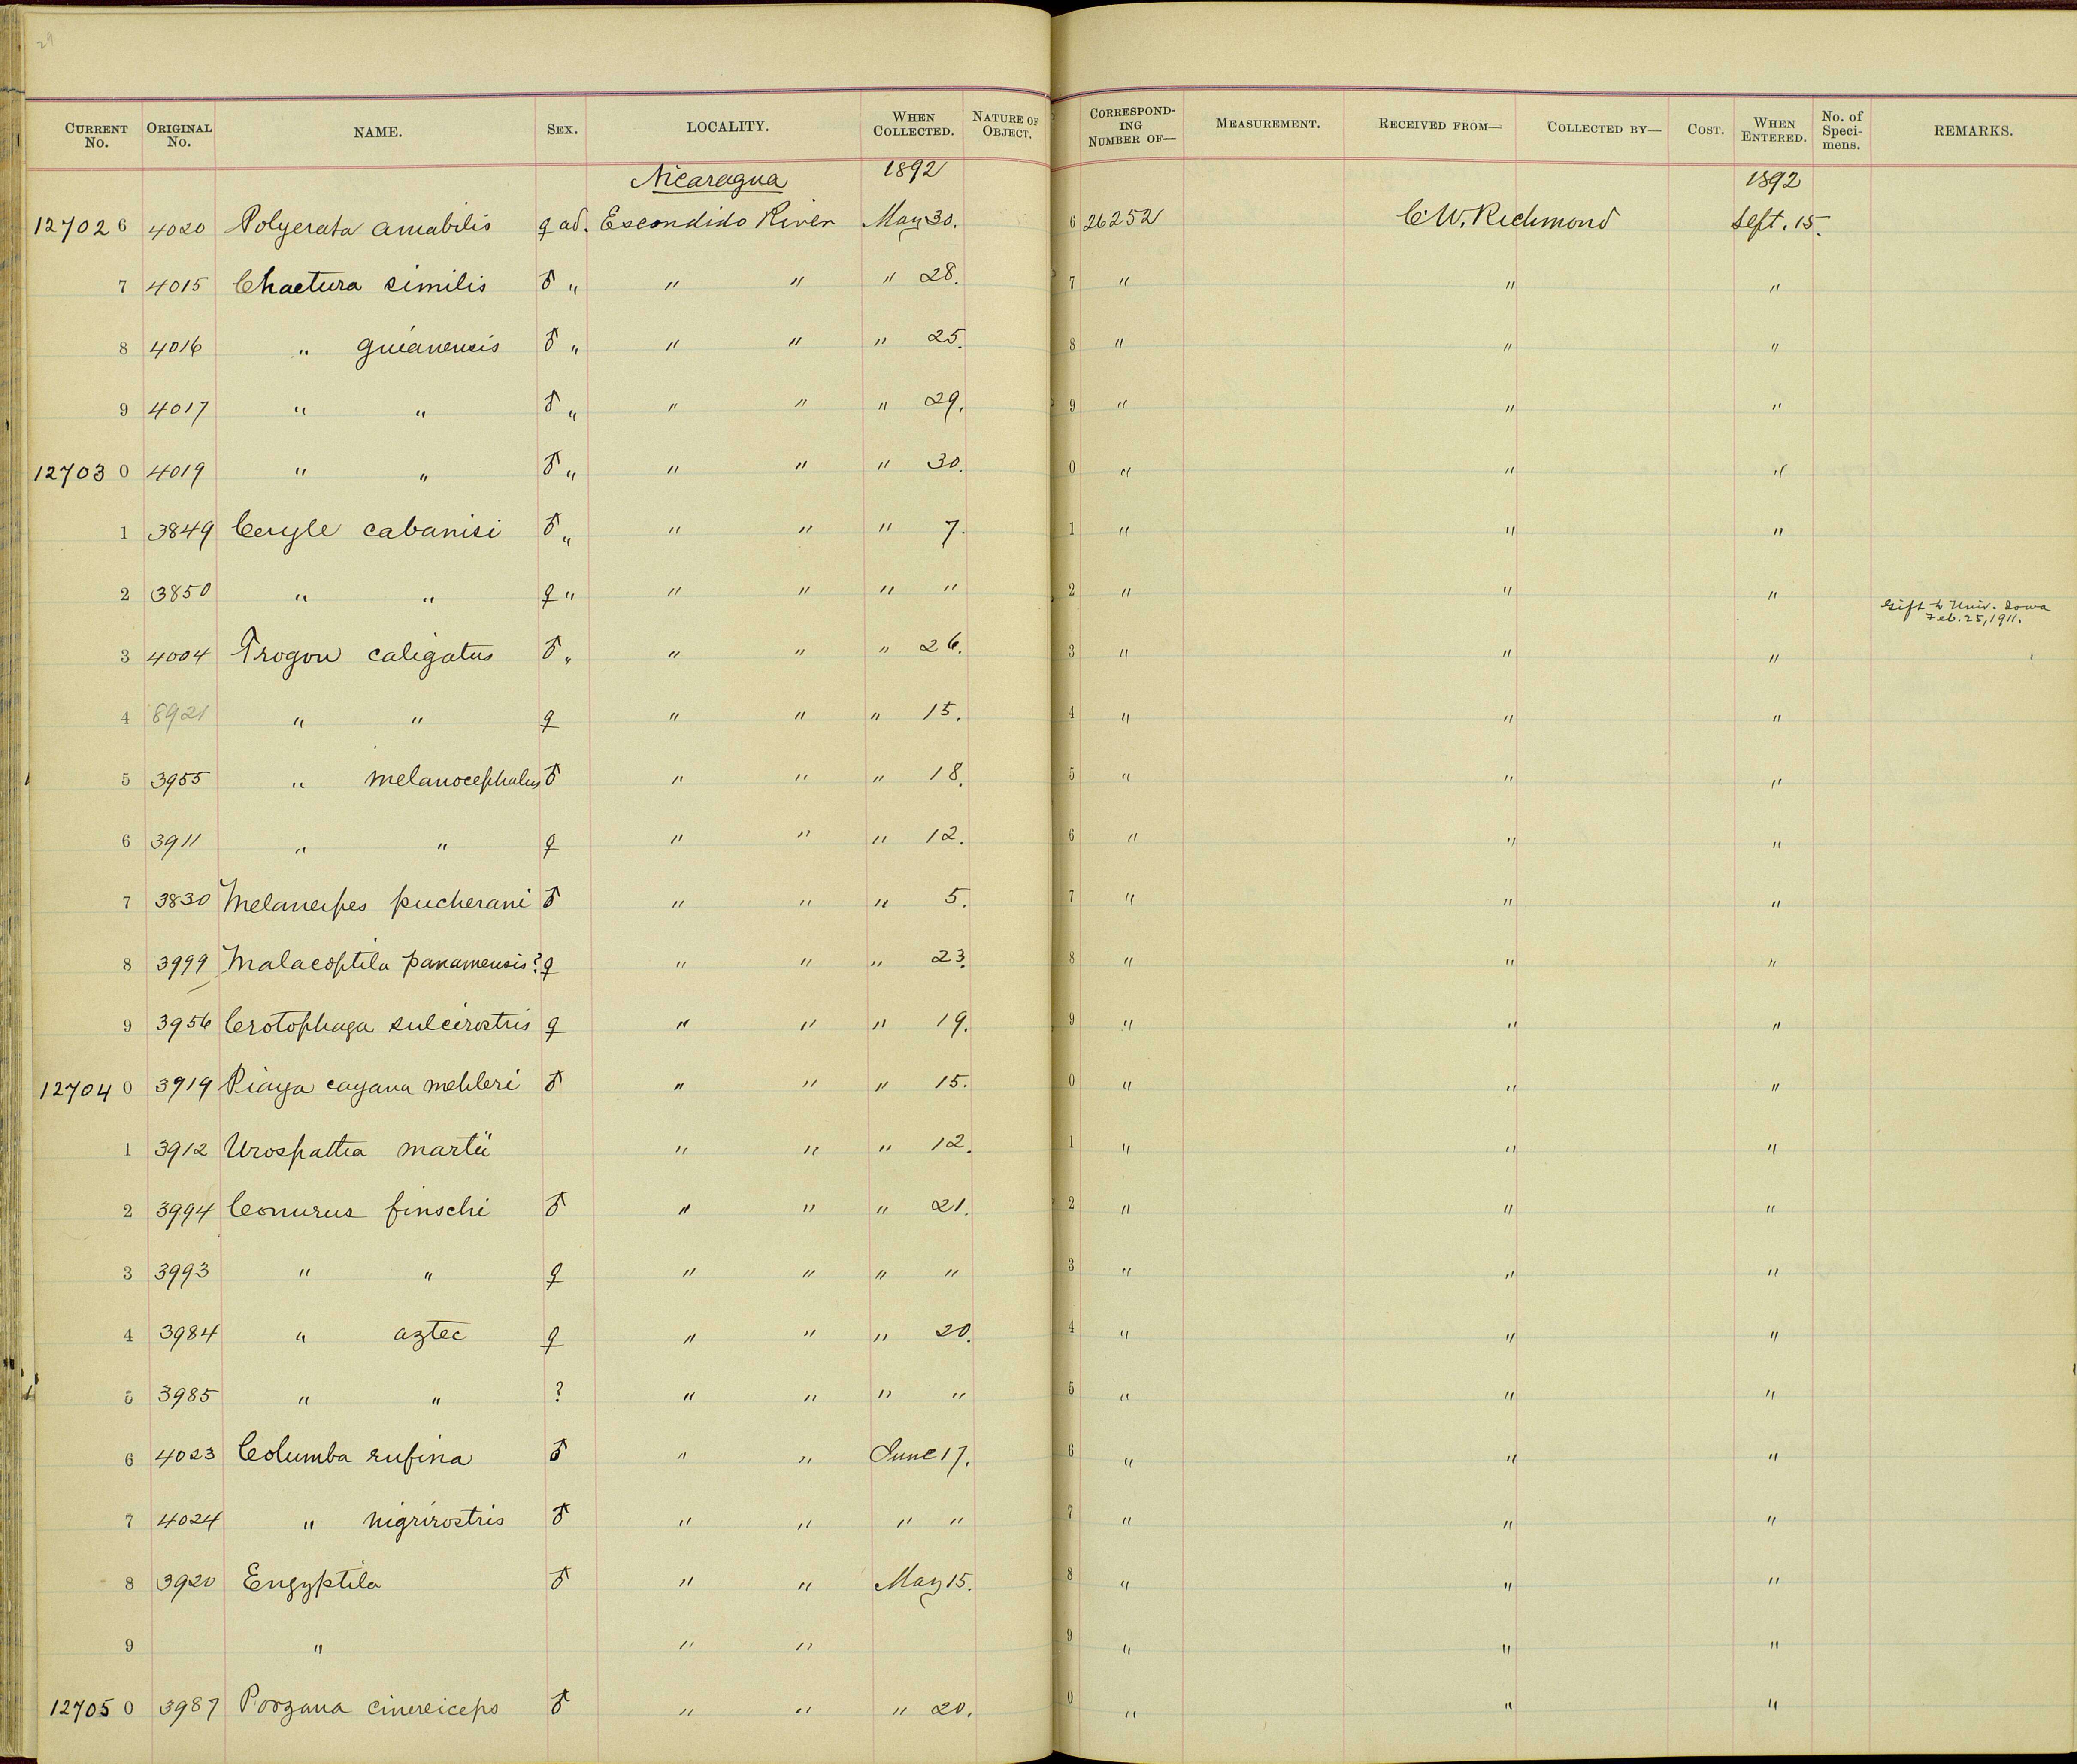 29
CURRENT No. ORIGINAL No. NAME. SEX. LOCALITY. WHEN COLLECTED. NATURE OF OBJECT. CORRESPONDING NUMBER OF— MEASUREMENT. RECEIVED FROM— COLLECTED BY— COST. WHEN ENTERED. No. of Specimens. REMARKS.
Nicaragua 1892 1892
127026 4020 Polyerata amabilis ♀ ad. Escondido River May 30. 6 26252 C.W. Richmond Sept. 15.
7 4015 Chaetura similis ♂ " " " " 28. 7 " " "
8 4016 " guianensis ♂ " " " " 25. 8 " " "
9 4017 " " ♂ " " " " 29. 9 " " "
127030 4019 " " ♂ " " " " 30. 0 " " "
1 3849 Ceryle cabanisi ♂ " " " " 7. 1 " " "
2 3850 " " ♀ " " " " " 2 " " " Gift to Univ. Iowa Feb. 25, 1911.
3 4004 Trogon caligatus ♂ " " " " 26. 3 " " "
4 8921 " " ♀ " " " 15. 4 " " "
5 3955 " melanocephalus ♂ " " " 18. 5 " " "
6 3911 " " ♀ " " " 12. 6 " " "
7 3830 Melanerpes pucherani ♂ " " " 5. 7 " " "
8 3999 Malacoptila panamensis? ♀ " " " 23. 8 " " "
9 3956 Crotophaga sulcirostris ♀ " " " 19. 9 " " "
127040 3919 Piaya cayana mehleri ♂ " " " 15. 0 " " "
1 3912 Urospatha martii " " " 12. 1 " " "
2 3994 Conurus finschi ♂ " " " 21. 2 " " "
3 3993 " " ♀ " " " " 3 " " "
4 3984 " aztec ♀ " " " 20. 4 " " "
5 3985 " " ? " " " " 5 " " "
6 4023 Columba rufina ♂ " " June 17. 6 " " "
7 4024 " nigrirostris ♂ " " " " 7 " " "
8 3920 Engyptila ♂ " " May 15. 8 " " "
9 " " " 9 " " "
127050 3987 Porzana cinereiceps ♂ " " " 20. 0 " " "